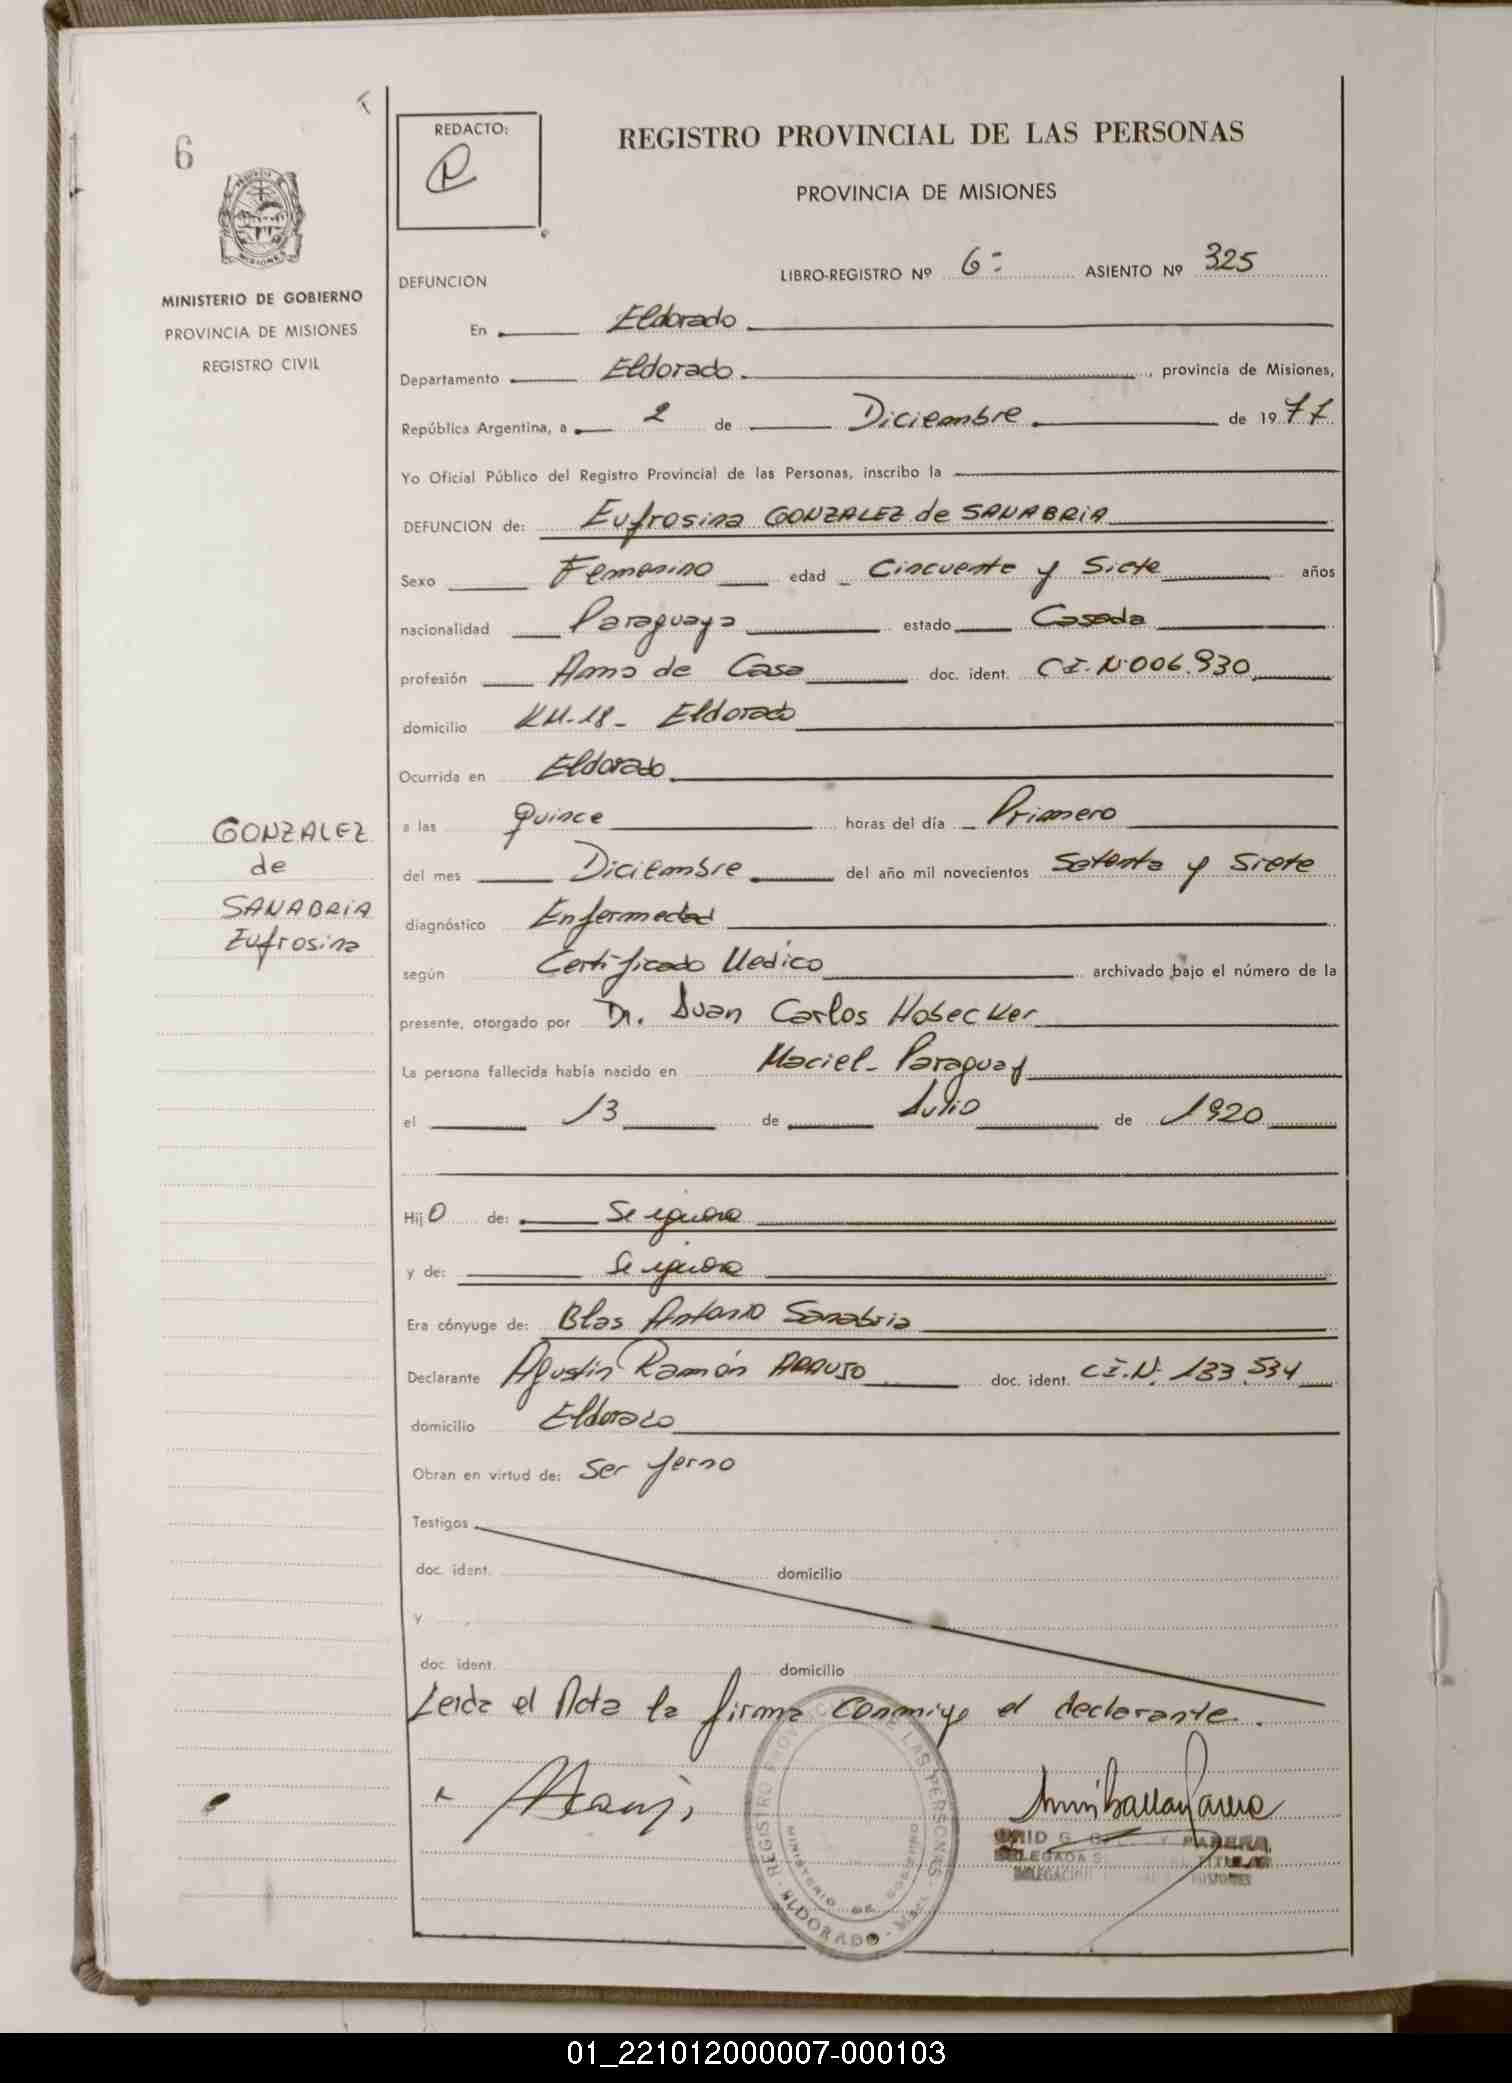 6
REDACTO:
REGISTRO PROVINCIAL DE LAS PERSONAS
PROVINCIA DE MISIONES
MINISTERIO DE GOBIERNO
PROVINCIA DE MISIONES
REGISTRO CIVIL
LIBRO-REGISTRO Nº 6= ASIENTO Nº 325
DEFUNCION
En Eldorado
Departamento Eldorado. , provincia de Misiones,
República Argentina, a 2 de Diciembre de 1977
Yo Oficial Público del Registro Provincial de las Personas, inscribo la
DEFUNCION de: Eufrosina GONZALEZ de SANABRIA
Sexo Femenino edad Cincuenta y Siete años
nacionalidad Paraguaya estado Casada
profesión Ama de Casa doc. ident. C.I.Nº006.930
domicilio KM.18- Eldorado
Ocurrida en Eldorado
a las quince horas del día Primero
del mes Diciembre del año mil novecientos Setenta y Siete
diagnóstico Enfermedad
según Certificado Medico archivado bajo el número de la
presente, otorgado por Dr. Juan Carlos Hobecker
La persona fallecida había nacido en Maciel- Paraguay
el 13 de Julio de 1920
Hij0 de: Se ignora
y de: Se ignora
Era cónyuge de: Blas Antonio Sanabria
Declarante Agustín Ramón ARAUJO doc. ident. C.I.N. 133.534
domicilio Eldorado
Obran en virtud de: Ser yerno
Testigos
doc. ident. domicilio
y
doc. ident. domicilio
Leida el Acta la firma conmigo el declarante.
GONZALEZ
de
SANABRIA
Eufrosina
REGISTRO PROVINCIAL DE LAS PERSONAS
MINISTERIO DE GOBIERNO
ELDORADO - Mnes.
PARERA
TITULAR
MISIONES
01_221012000007-000103